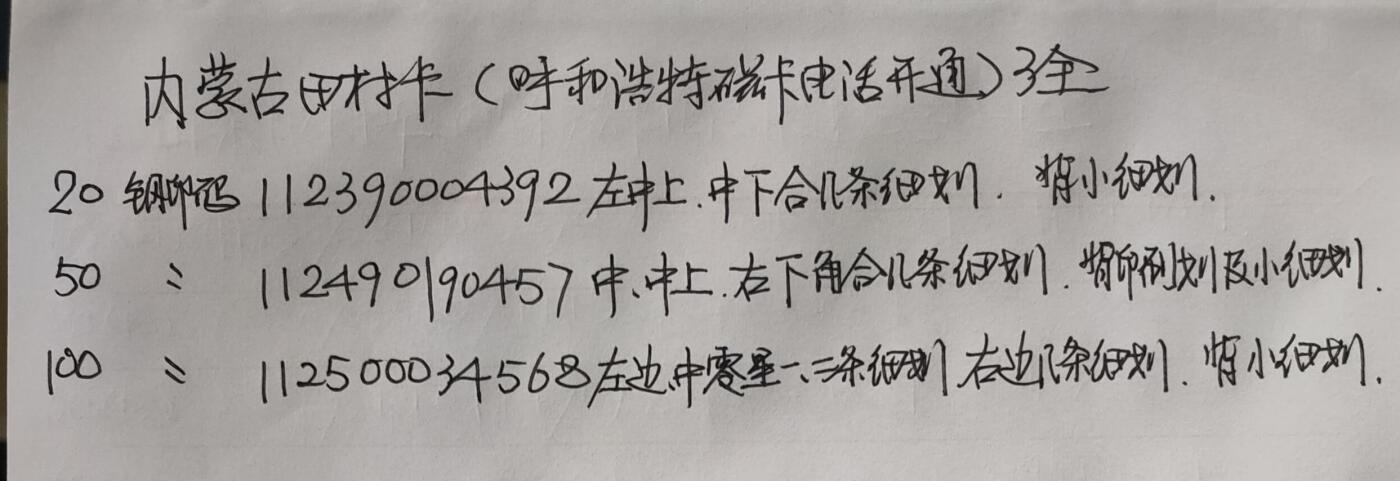 内蒙古田村卡（呼和浩特磁卡电话开通）3全
20 钢印码 112390004392左中上.中下合几条细划. 背小细划.
50 〃 112490190457中、中上.右下角合几条细划. 背印刷划及小细划.
100 〃 112500034568左边、中零星一、二条细划 右边几条细划. 背小细划.